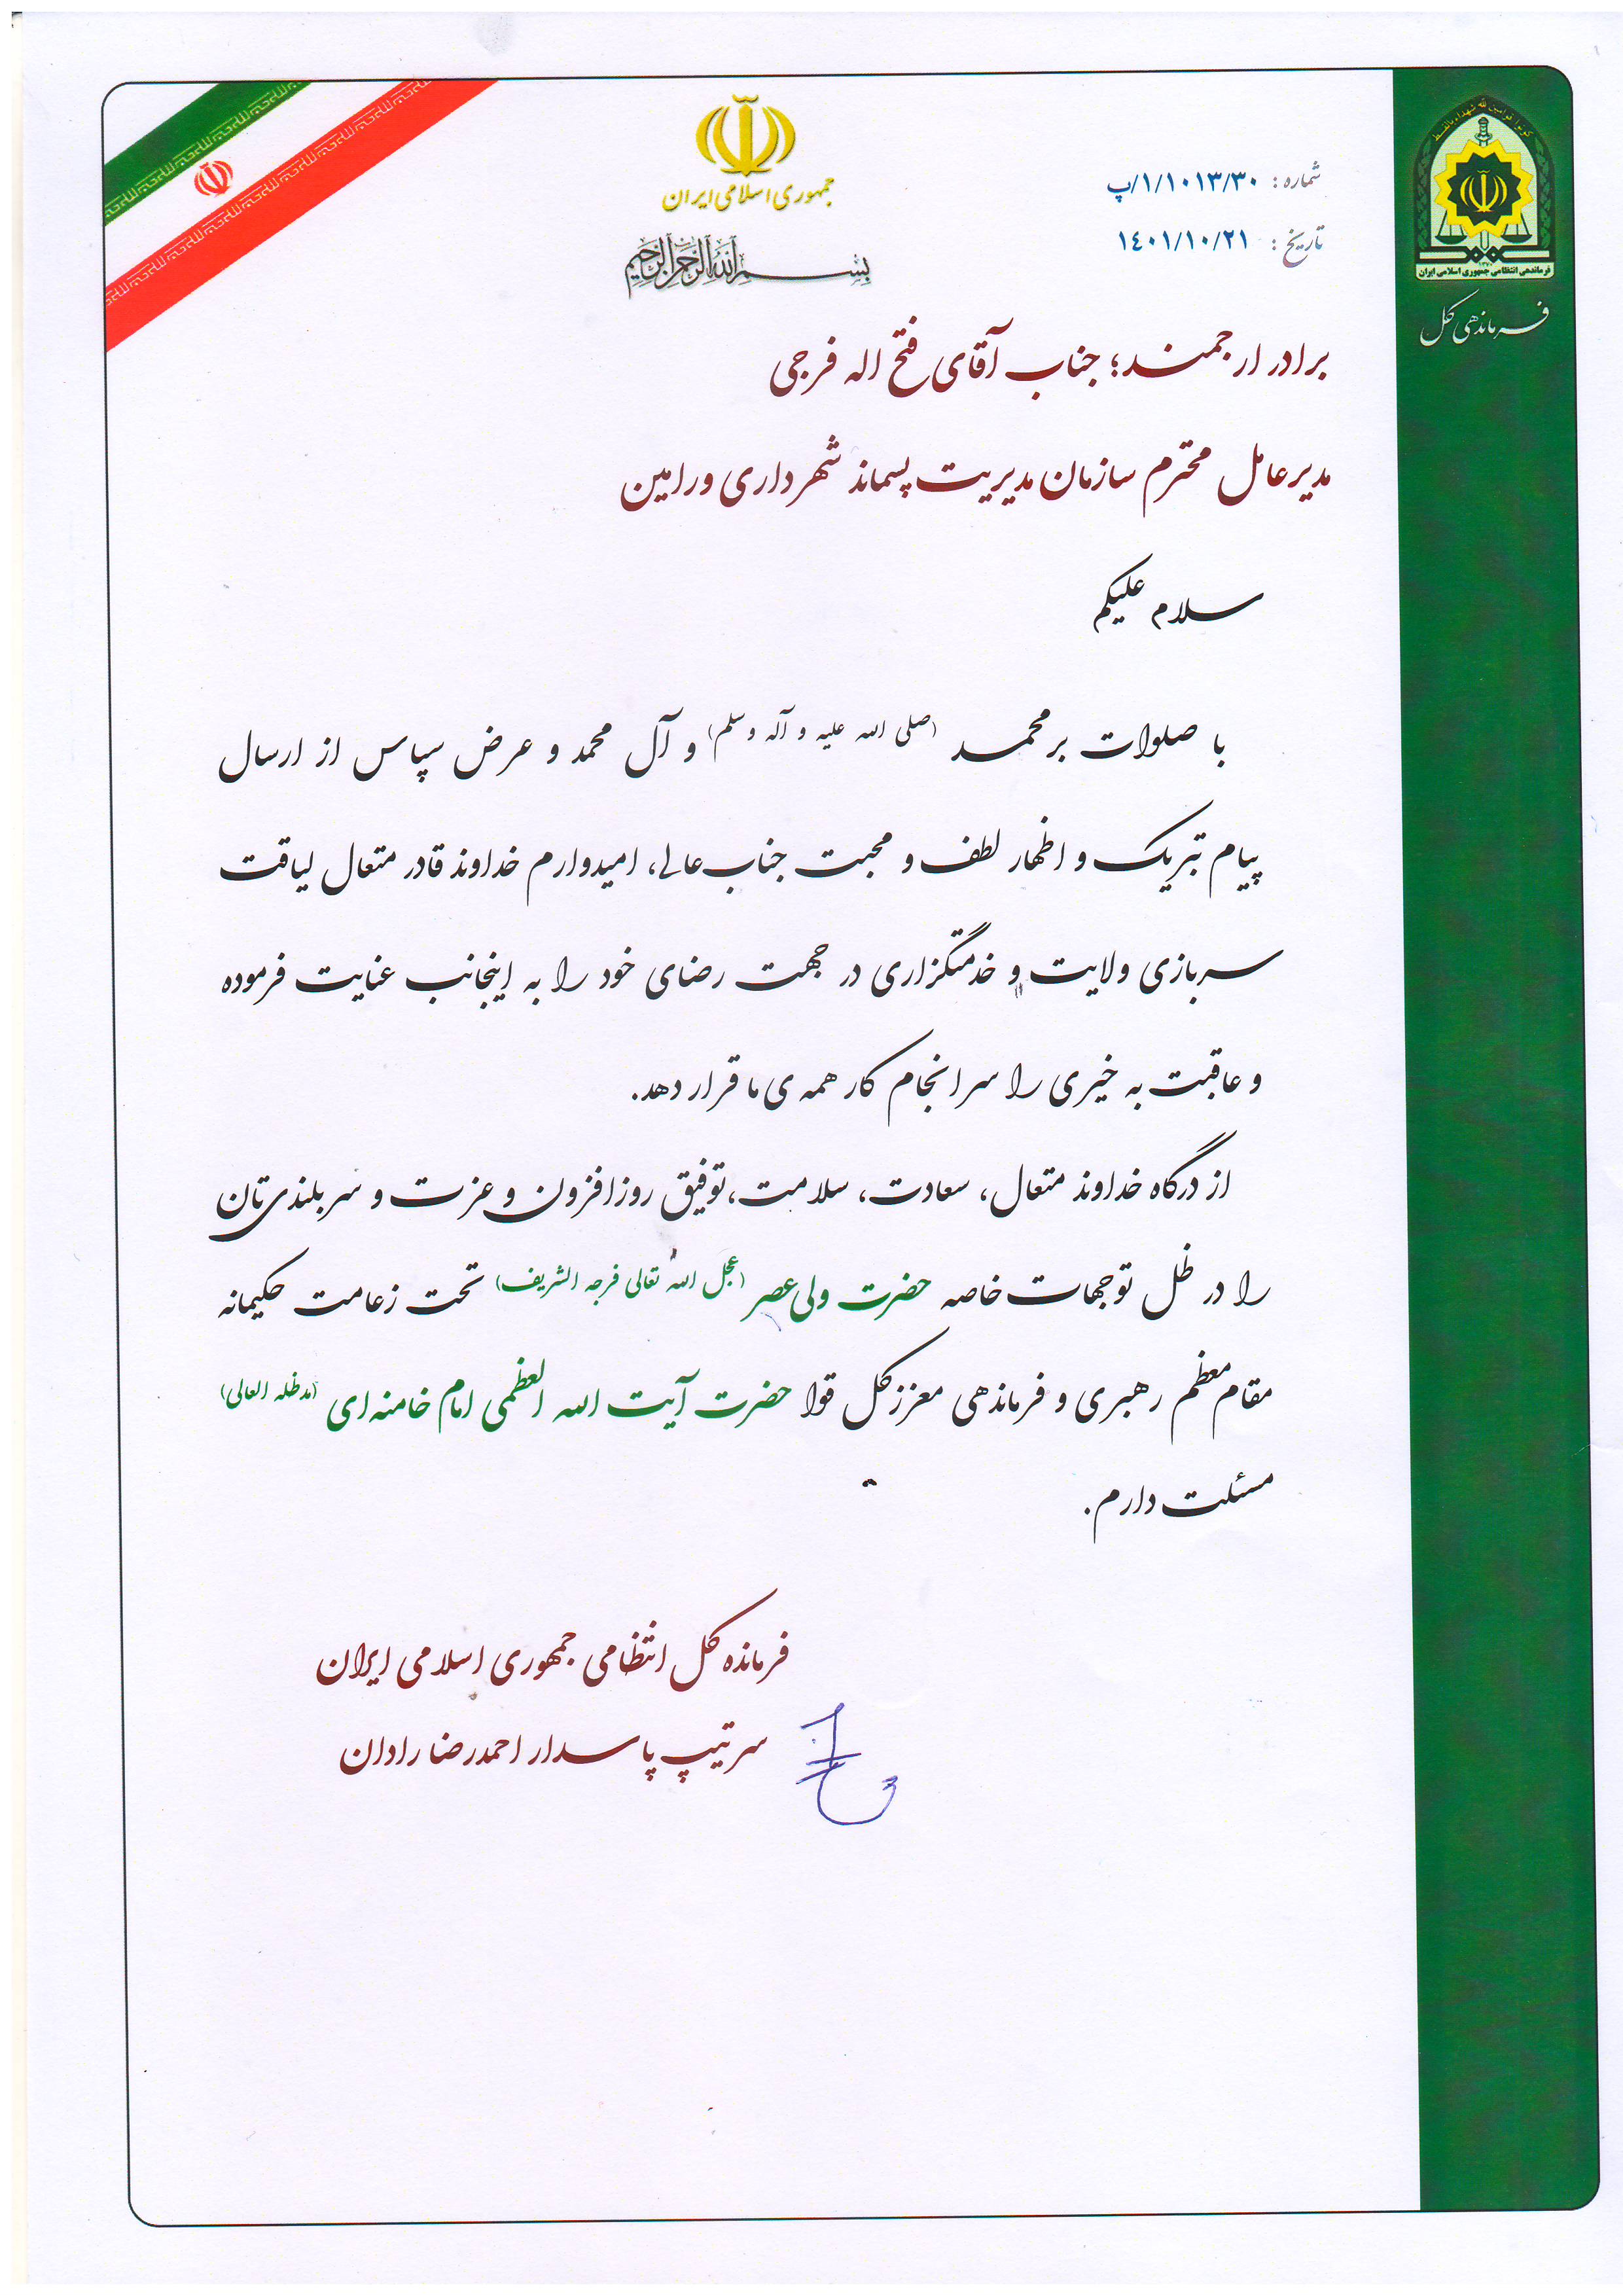 کونوا قوامین لله شهداء بالقسط
فرماندهی انتظامی جمهوری اسلامی ایران
فرماندهی کل
جمهوری اسلامی ایران
بسم الله الرحمن الرحیم
شماره : ۱/۱۰۱۳/۳۰/پ
تاریخ : ۱۴۰۱/۱۰/۲۱
برادر ارجمند؛ جناب آقای فتح اله فرجی
مدیرعامل محترم سازمان مدیریت پسماند شهرداری ورامین
سلام علیکم
با صلوات بر محمد (صلی الله علیه و آله وسلم) و آل محمد و عرض سپاس از ارسال
پیام تبریک و اظهار لطف و محبت جناب‌عالی، امیدوارم خداوند قادر متعال لیاقت
سربازی ولایت و خدمتگزاری در جهت رضای خود را به اینجانب عنایت فرموده
و عاقبت به خیری را سرانجام کار همه ی ما قرار دهد.
از درگاه خداوند متعال، سعادت، سلامت، توفیق روزافزون و عزت و سربلندی‌تان
را در ظل توجهات خاصه حضرت ولی‌عصر (عجل الله تعالی فرجه الشریف) تحت زعامت حکیمانه
مقام معظم رهبری و فرماندهی معزز کل قوا حضرت آیت الله العظمی امام خامنه‌ای (مدظله العالی)
مسئلت دارم.
فرمانده کل انتظامی جمهوری اسلامی ایران
سرتیپ پاسدار احمدرضا رادان